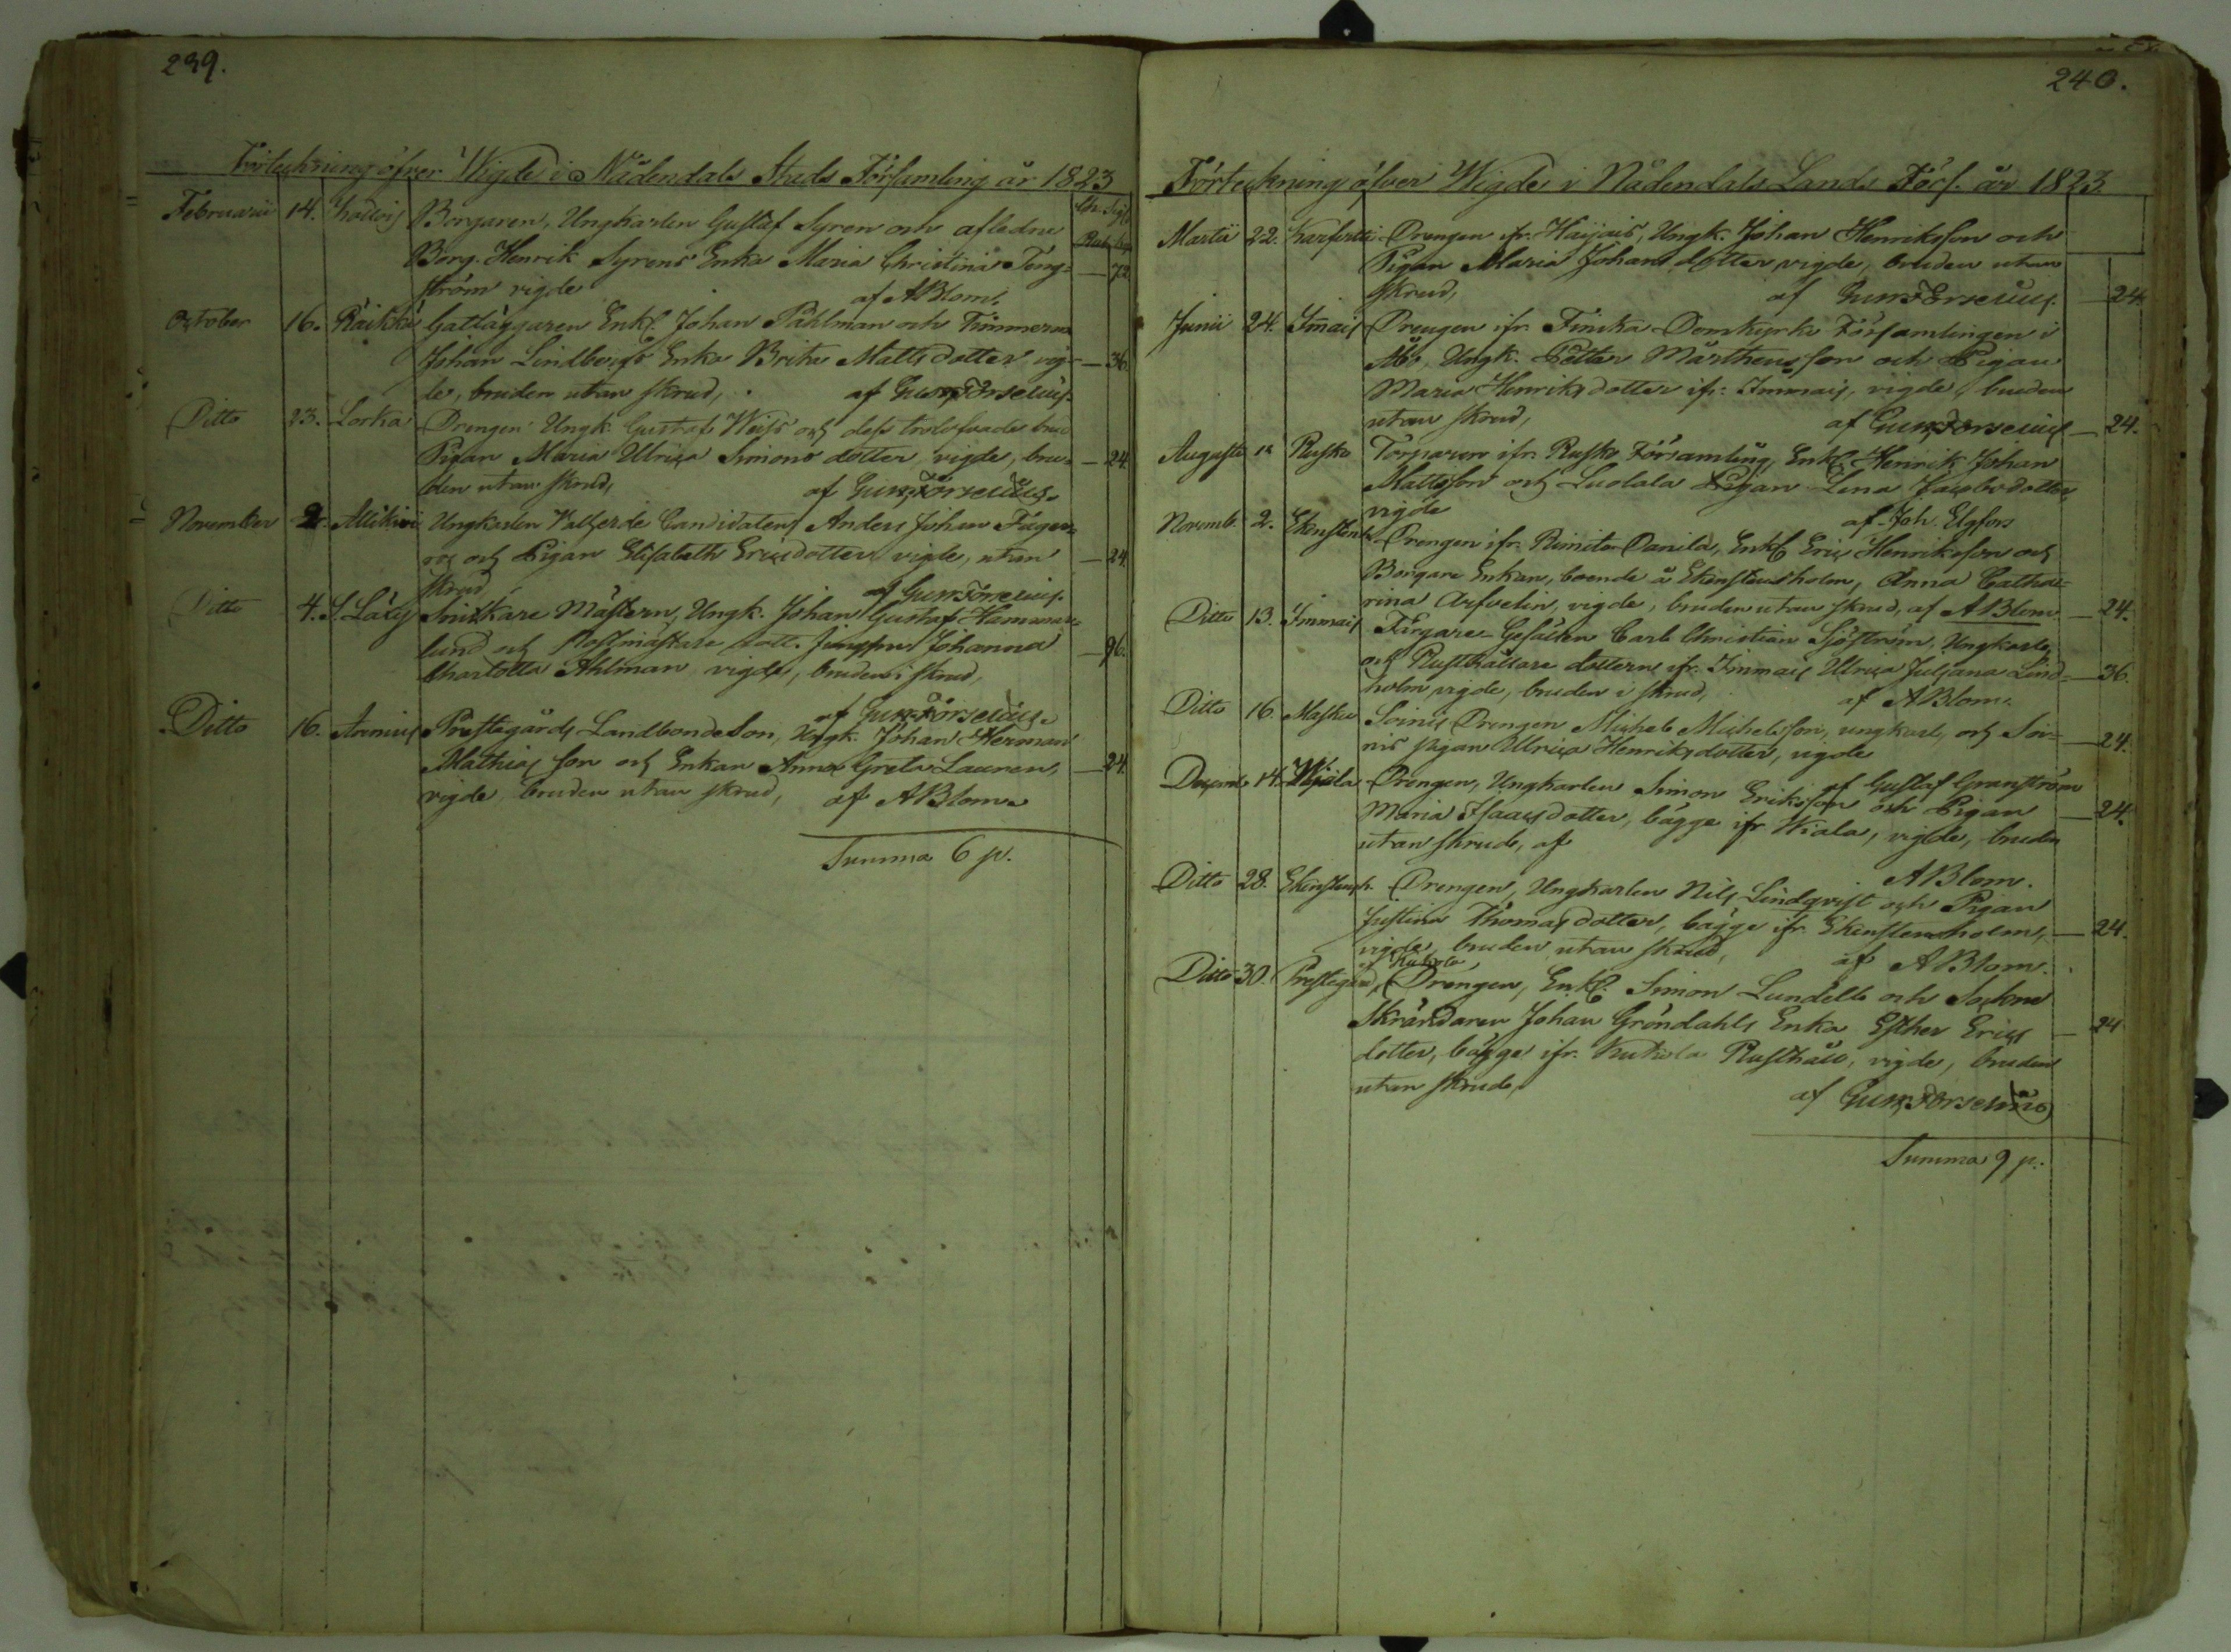 239.
Förteckning öfver Wigde i Nådendals Stads Församling år 1823
Februarii 14. Borgaren, Ungkarlen Gustaf Syren och afledne
Borg. Henrik Syrens Enka Maria Christina Teng= — 72
ström vigde af ABlom.
October 16. Räikkä Gatläggaren Enkl. Johan Påhlman och
Johan Lindbergs Enka Brita Matts dotter vig= — 36
de, bruden utan skrud, af Gust. Forselius.
Ditto 23. Lorka Drengen Ungk. Gustaf och dess trolofvade brud
Pigan Maria Ulrica Simons dotter, vigde, bru= — 24
den utan skrud, af Gust. Forselius.
November 2. Ungkarlen Candidaten Anders Johan Fager=
och Pigan Elisabeth Ericsdotter vigde, utan — 24
skrud, af Gust. Forselius.
Ditto 4. Snickare Mästern, Ungk. Johan Gustaf Hammar=
lund och Postmästare dott. Jungfru Johanna — 96.
Charlotta Ahlman vigde, bruden i skrud,
af Gust. Forselius.
Ditto 16. Arenius Prestegårds Landbonde Son, Ungk. Johan Herman
Mathias son och Enkan Anna Greta Lauren, — 24
vigde, bruden utan skrud, af ABlom.
Summa 6 p.
240.
Förteckning öfver Wigde i Nådendals Lands Förs. år 1823
Martii 22. Drengen ifr. Haijais, Ungk. Johan Henriksson och
Pigan Maria Johans dotter, vigde, bruden utan
skrud, af Gust. Forselius. — 24.
Junii 24. Immais Drengen ifr. Finska Domkyrko Församlingen i
Åbo, Ungk. Petter Mårthensson och Pigan
Maria Henriks dotter ifr. Immais, vigde, bruden
utan skrud, af Gust. Forselius — 24.
Augusti Rusko Torparen ifr. Rusko Församling, Enkl. Henrik Johan
Mattsson och Luolala Pigan Lena Jacobsdotter
vigde af Joh. Elgfors
Novemb. 2. Ekensten Drengen ifr. Rimito Danila, Enkl. Eric Henriksson och
Borgare Enkan, boende å Ekenstensholm, Anna Catha=
rina Arfvelin, vigde, bruden utan skrud, af ABlom. — 24.
Ditto 13. Immais Färgare-Gesällen Carl Christian Sjöström, Ungkarl,
och Rusthållare dottern ifr. Immais Ulrica Juliana Lind= — 36.
holm vigde, bruden i skrud, af ABlom.
Ditto 16. Masku Soinis Drengen Michel Michelsson, ungkarl, och Soi=
nis pigan Ulrica Henriksdotter, vigde — 24.
af Gustaf Granström
Decemb. 14. Wiala Drengen, Ungkarlen Simon Eriksson och Pigan
Maria Isaacsdotter, bägge ifr. Wiala, vigde, bruden — 24.
utan skrud, af
ABlom.
Ditto 28. Ekenstensh. Drengen, Ungkarlen Nils Lindqvist och Pigan
Justina Thomasdotter, bägge ifr. Ekenstensholm, — 24.
vigde, bruden utan skrud, af ABlom.
Ditto 30. Prestegård, Drengen, Enkl. Simon Lundell och Sockne
Skräddaren Johan Gröndahls Enka Esther Erics — 24
dotter, bägge ifr. Rusthåll, vigde, bruden
utan skrud,
af Gust. Forselius
Summa 9 p.